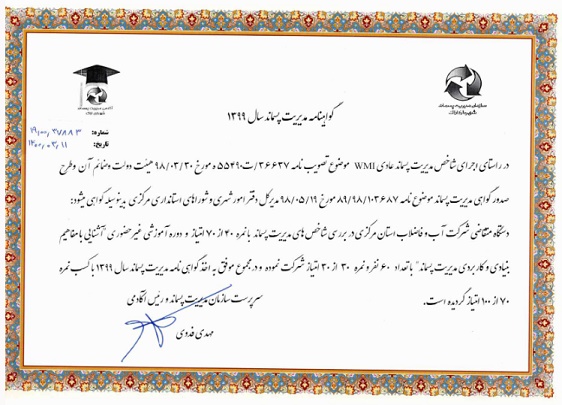 سازمان مدیریت پسماند
شماره: ۱۹,۰۰,۲۷۸۸۳
تاریخ: ۱۴۰۰,۰۳,۱۱
گواهینامه مدیریت پسماند سال ۱۳۹۹
در راستای اجرای شاخص مدیریت پسماند عادی WMI موضوع تصویب نامه ۳۶۶۳۷/ت۵۵۴۹۰ه مورخ ۹۸/۰۳/۳۰ هیئت دولت وضمائم آن وطرح
صدور گواهی مدیریت پسماند موضوع نامه ۸۹/۹۸/۱۰۳۶۸۷ مورخ ۹۸/۰۵/۱۹ مدیرکل دفتر امور شهری و شوراهای استانداری مرکزی بدینوسیله گواهی میشود:
دستگاه متقاضی شرکت آب و فاضلاب استان مرکزی در بررسی شاخص های مدیریت پسماند با نمره ۴۰ از ۷۰ امتیاز و دوره آموزشی غیرحضوری "آشنایی با مفاهیم
بنیادی و کاربردی مدیریت پسماند" با تعداد ۶۰ نفر و نمره ۳۰ از ۳۰ امتیاز شرکت نموده و در مجموع موفق به اخذ گواهی نامه مدیریت پسماند سال ۱۳۹۹ با کسب نمره
۷۰ از ۱۰۰ امتیاز گردیده است.
سرپرست سازمان مدیریت پسماند و رئیس آکادمی
مهدی فدوی